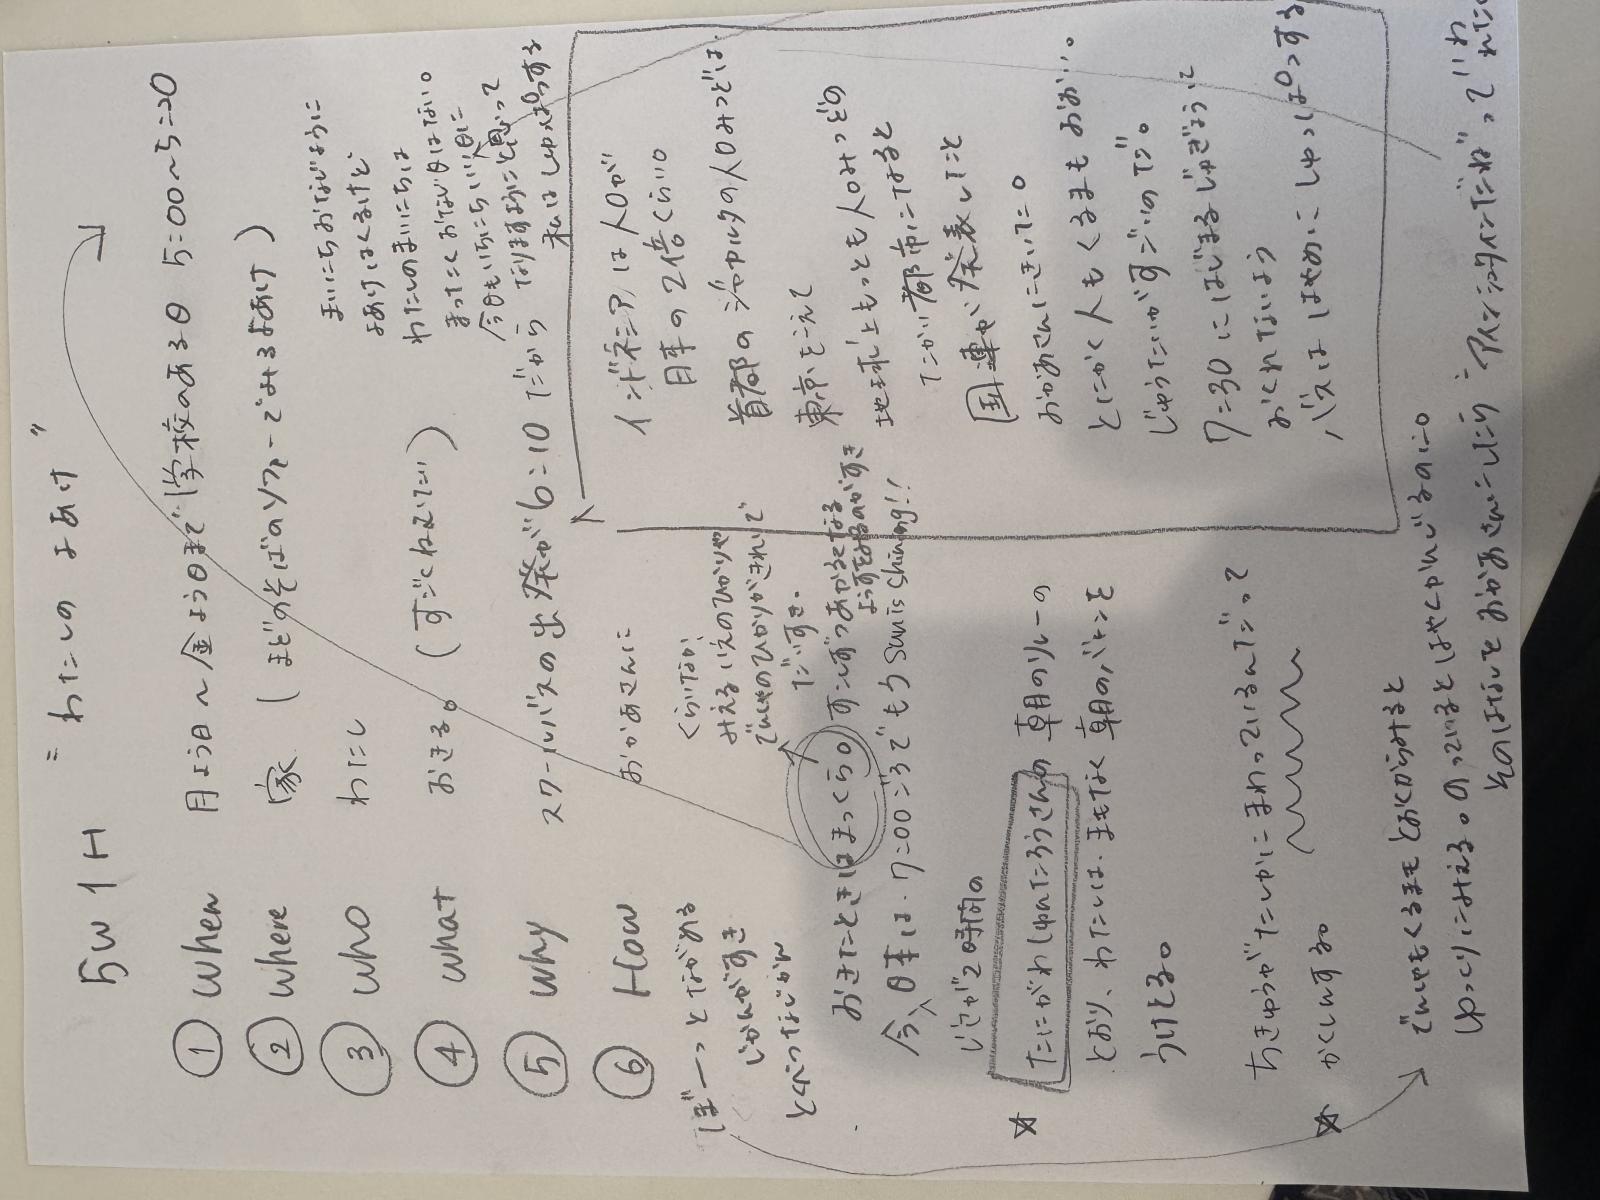 5W1H "わたしの よあけ"
① When 月よう日〜金よう日まで 学校のある日 5:00〜5:20
② Where 家 (まどのそばのソファーでみるよあけ)
③ Who わたし
④ What おきる。(すごくねむたい)
まいにちおなじように
よあけはくるけど
わたしのまいにちは
まったくおなじ日はない。
今日もいちにちいい日に
なりますようにと思って
私はしゅっぱつする
⑤ Why スクールバスの出発が6:10だから
⑥ How おかあさんに
ぼーっとながめる
じかんがすき
とくべつなじかん
くらいなか、
みえるいえのひかりや
でんしゃのひかりがきれいで
だいすき。
おきたときはまっくら。すこしずつあかるくなる
ようすをみるのがすき
今、日本は、7:00ごろでもう Sun is Shining!!
じさが2時間の
☆ たにがわしゅんたろうさんの 朝のリレーの
とおり、わたしは、まもなく 朝のバトンを
うけとる。
ちきゅうがたしかにまわっているんだって
☆ かくしんする。
インドネシアは人口が
日本の2倍くらい。
首都のジャカルタの人口みつどは、
東京をこえて
地球上もっとも人口みつどの
たかい都市になると
国連が発表してこと
おかあさんにきいた。
とにかく人もくるまもおおい…。
じゅうたいがすごいのだ。
7:30にはじまるじゅぎょうに
おくれないよう
バスははやめにしゅっぱつする
でんしゃもくるまもとおくからみると
ゆっくりにみえる。のっているとはやくかんじるのに。
そのはなしをおかあさんにしたら "アインシュタインだね"っていわれた